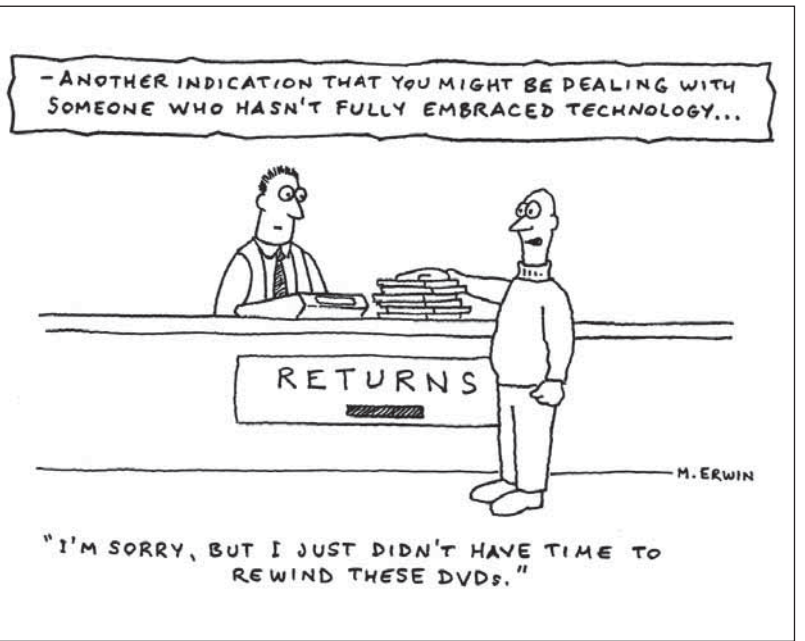 - ANOTHER INDICATION THAT YOU MIGHT BE DEALING WITH
SOMEONE WHO HASN'T FULLY EMBRACED TECHNOLOGY...
RETURNS
M. ERWIN
"I'M SORRY, BUT I JUST DIDN'T HAVE TIME TO
REWIND THESE DVDs."